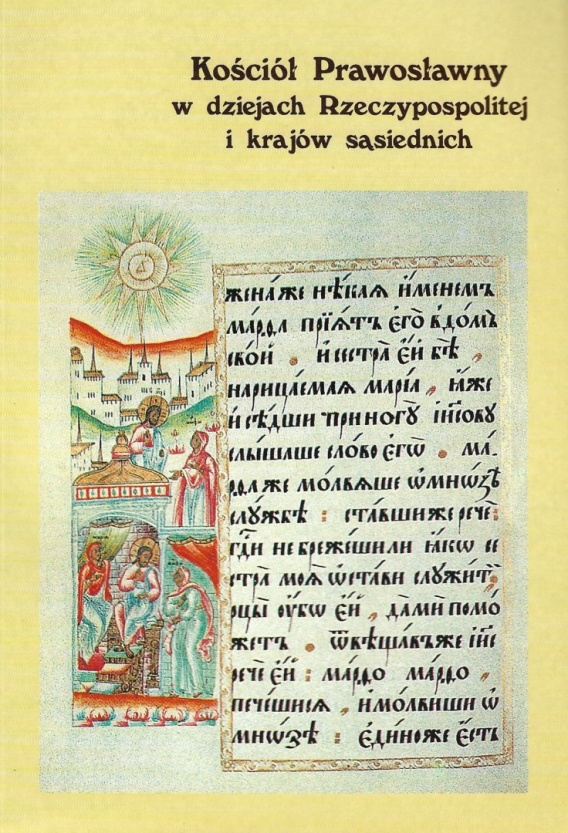 Kościół Prawosławny
w dziejach Rzeczypospolitej
i krajów sąsiednich
жена́же нѣ́кая и҆́менемъ
ма́рѳа прїѧ́тъ є҆го̀ въдо́мъ
сво́й . и҆сестра̀ є҆́й бѣ̀ ,
нарица́емая марі́а , ꙗ҆́же
и҆ сѣ́дши приногꙋ̀ і҆и҃сову
слы́шаше сло́во є҆гѡ̀ . ма́-
рѳа же мо́лвѧше ѡ҆мно́зѣ
слꙋ́жбѣ : ста́вши же речѐ :
гд҃и не бреже́ши ли ꙗ҆́кѡ се
стра̀ моѧ̀ ѡ҆ста́ви слꙋжи́ти ,
рцы̀ ᲂу҆́бѡ є҆́й , да́ ми помо́
жетъ . ѿвѣща́въ же і҆и҃с
речѐ є҆́й : ма́рѳо ма́рѳо ,
пече́шисѧ , и҆мо́лвиши ѡ҆
мно́зѣ : є҆ди́но же є҆́сть